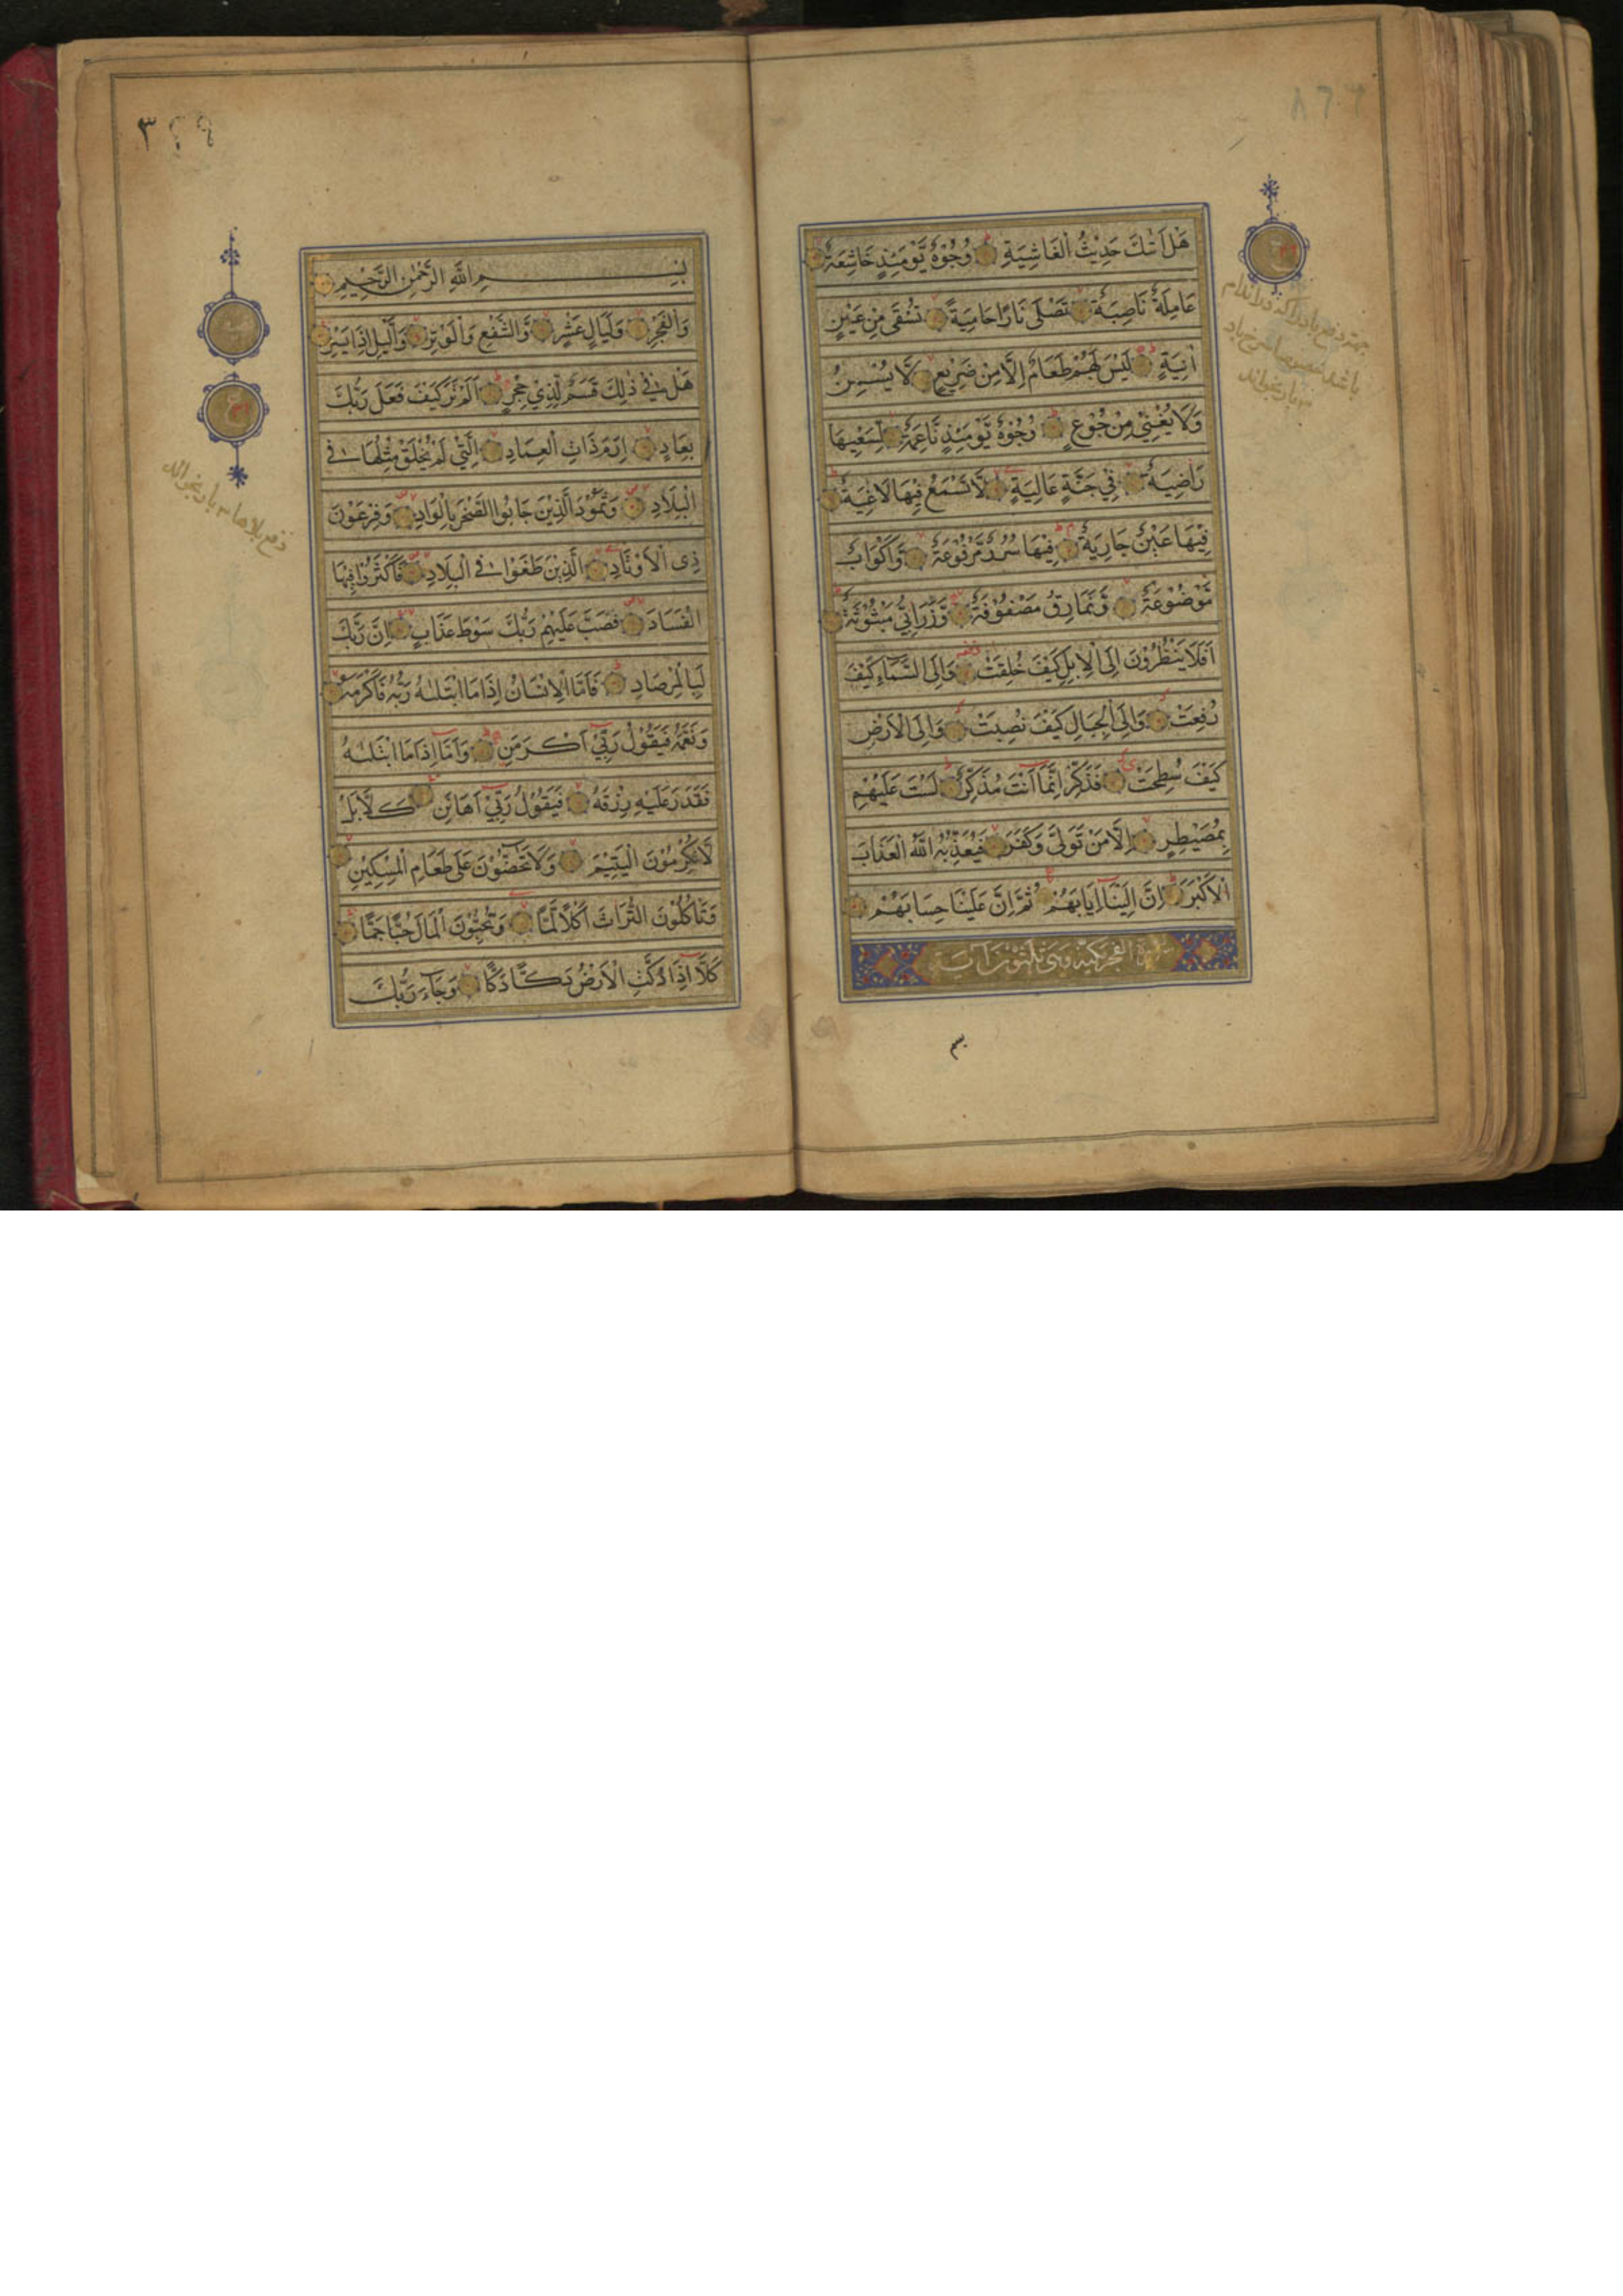 هَلْ اَتٰىكَ حَدِيْثُ الْغَاشِيَةِ وُجُوْهٌ يَّوْمَئِذٍ خَاشِعَةٌ
عَامِلَةٌ نَاصِبَةٌ تَصْلٰى نَارًا حَامِيَةً تُسْقٰى مِنْ عَيْنٍ
اٰنِيَةٍ لَيْسَ لَهُمْ طَعَامٌ اِلَّا مِنْ ضَرِيْعٍ لَا يُسْمِنُ
وَلَا يُغْنِيْ مِنْ جُوْعٍ وُجُوْهٌ يَّوْمَئِذٍ نَّاعِمَةٌ لِسَعْيِهَا
رَاضِيَةٌ فِيْ جَنَّةٍ عَالِيَةٍ لَا تَسْمَعُ فِيْهَا لَاغِيَةً
فِيْهَا عَيْنٌ جَارِيَةٌ فِيْهَا سُرُرٌ مَّرْفُوْعَةٌ وَّاَكْوَابٌ
مَّوْضُوْعَةٌ وَّنَمَارِقُ مَصْفُوْفَةٌ وَّزَرَابِيُّ مَبْثُوْثَةٌ
اَفَلَا يَنْظُرُوْنَ اِلَى الْاِبِلِ كَيْفَ خُلِقَتْ وَاِلَى السَّمَآءِ كَيْفَ
رُفِعَتْ وَاِلَى الْجِبَالِ كَيْفَ نُصِبَتْ وَاِلَى الْاَرْضِ
كَيْفَ سُطِحَتْ فَذَكِّرْ اِنَّمَا اَنْتَ مُذَكِّرٌ لَسْتَ عَلَيْهِمْ
بِمُصَيْطِرٍ اِلَّا مَنْ تَوَلّٰى وَكَفَرَ فَيُعَذِّبُهُ اللّٰهُ الْعَذَابَ
الْاَكْبَرَ اِنَّ اِلَيْنَا اِيَابَهُمْ ثُمَّ اِنَّ عَلَيْنَا حِسَابَهُمْ
سورة الفجر مكية وهى ثلثون آية
بسم
بِسْمِ اللّٰهِ الرَّحْمٰنِ الرَّحِيْمِ
وَالْفَجْرِ وَلَيَالٍ عَشْرٍ وَّالشَّفْعِ وَالْوَتْرِ وَالَّيْلِ اِذَا يَسْرِ
هَلْ فِيْ ذٰلِكَ قَسَمٌ لِّذِيْ حِجْرٍ اَلَمْ تَرَ كَيْفَ فَعَلَ رَبُّكَ
بِعَادٍ اِرَمَ ذَاتِ الْعِمَادِ الَّتِيْ لَمْ يُخْلَقْ مِثْلُهَا فِي
الْبِلَادِ وَثَمُوْدَ الَّذِيْنَ جَابُوا الصَّخْرَ بِالْوَادِ وَفِرْعَوْنَ
ذِى الْاَوْتَادِ الَّذِيْنَ طَغَوْا فِي الْبِلَادِ فَاَكْثَرُوْا فِيْهَا
الْفَسَادَ فَصَبَّ عَلَيْهِمْ رَبُّكَ سَوْطَ عَذَابٍ اِنَّ رَبَّكَ
لَبِالْمِرْصَادِ فَاَمَّا الْاِنْسَانُ اِذَا مَا ابْتَلٰىهُ رَبُّهُ فَاَكْرَمَهُ
وَنَعَّمَهُ فَيَقُوْلُ رَبِّيْ اَكْرَمَنِ وَاَمَّا اِذَا مَا ابْتَلٰىهُ
فَقَدَرَ عَلَيْهِ رِزْقَهُ فَيَقُوْلُ رَبِّيْ اَهَانَنِ كَلَّا بَلْ
لَا تُكْرِمُوْنَ الْيَتِيْمَ وَلَا تَحٰضُّوْنَ عَلٰى طَعَامِ الْمِسْكِيْنِ
وَتَأْكُلُوْنَ التُّرَاثَ اَكْلًا لَّمًّا وَتُحِبُّوْنَ الْمَالَ حُبًّا جَمًّا
كَلَّا اِذَا دُكَّتِ الْاَرْضُ دَكًّا دَكًّا وَجَآءَ رَبُّكَ